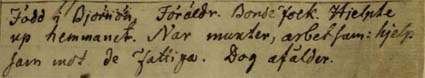 Född i Björnön. Föräldr. Bonde folk. Hjelpte
up hemmanet. Nar munter, arbetsam: hjelp
sam mot de fattiga. Dog af ålder.